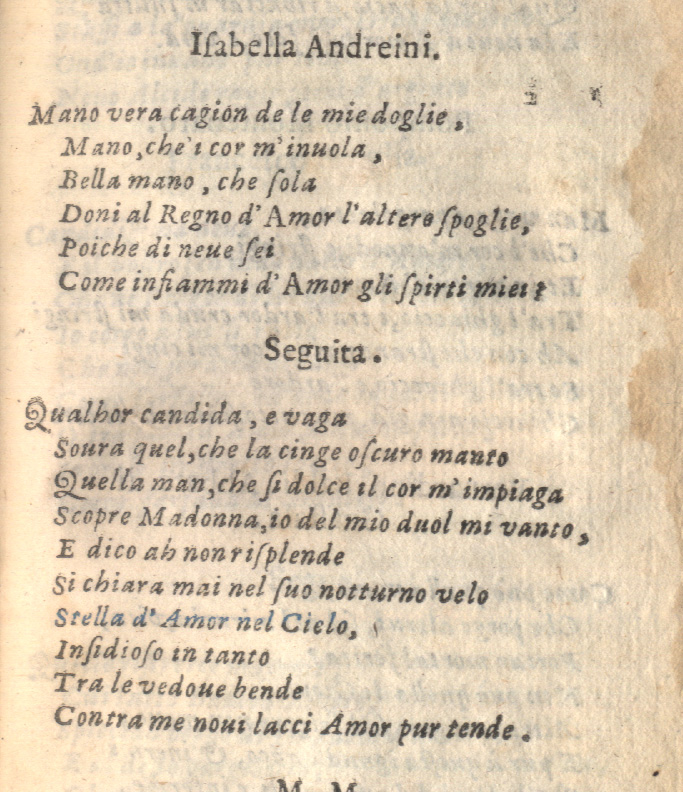 Iſabella Andreini.
Mano vera cagion de le mie doglie,
Mano, che'ı cor m'inuola,
Bella mano, che ſola
Doni al Regno d'Amor l'altere ſpoglie,
Poiche di neue ſei
Come infiammi d'Amor gli ſpirti miei?
Seguita.
Qualhor candida, e vaga
Soura quel, che la cinge oſcuro manto
Quella man, che ſi dolce il cor m'impiaga
Scopre Madonna, io del mio duol mi vanto,
E dico ah non riſplende
Si chiara mai nel ſuo notturno velo
Stella d'Amor nel Cielo,
Inſidioſo in tanto
Tra le vedoue bende
Contra me noui lacci Amor pur tende.